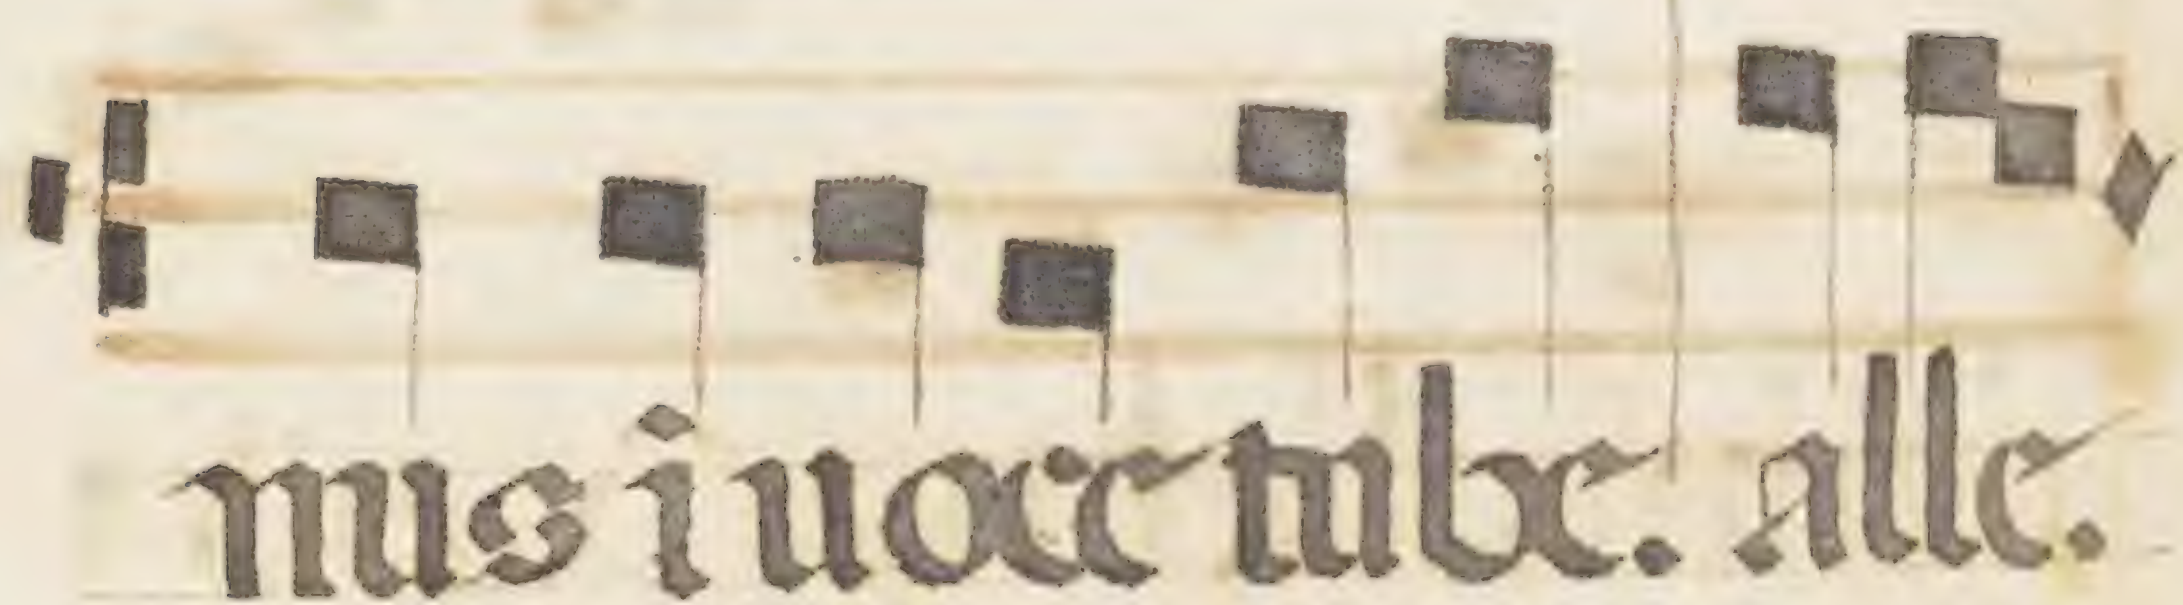 nus i uoce tube. alle.